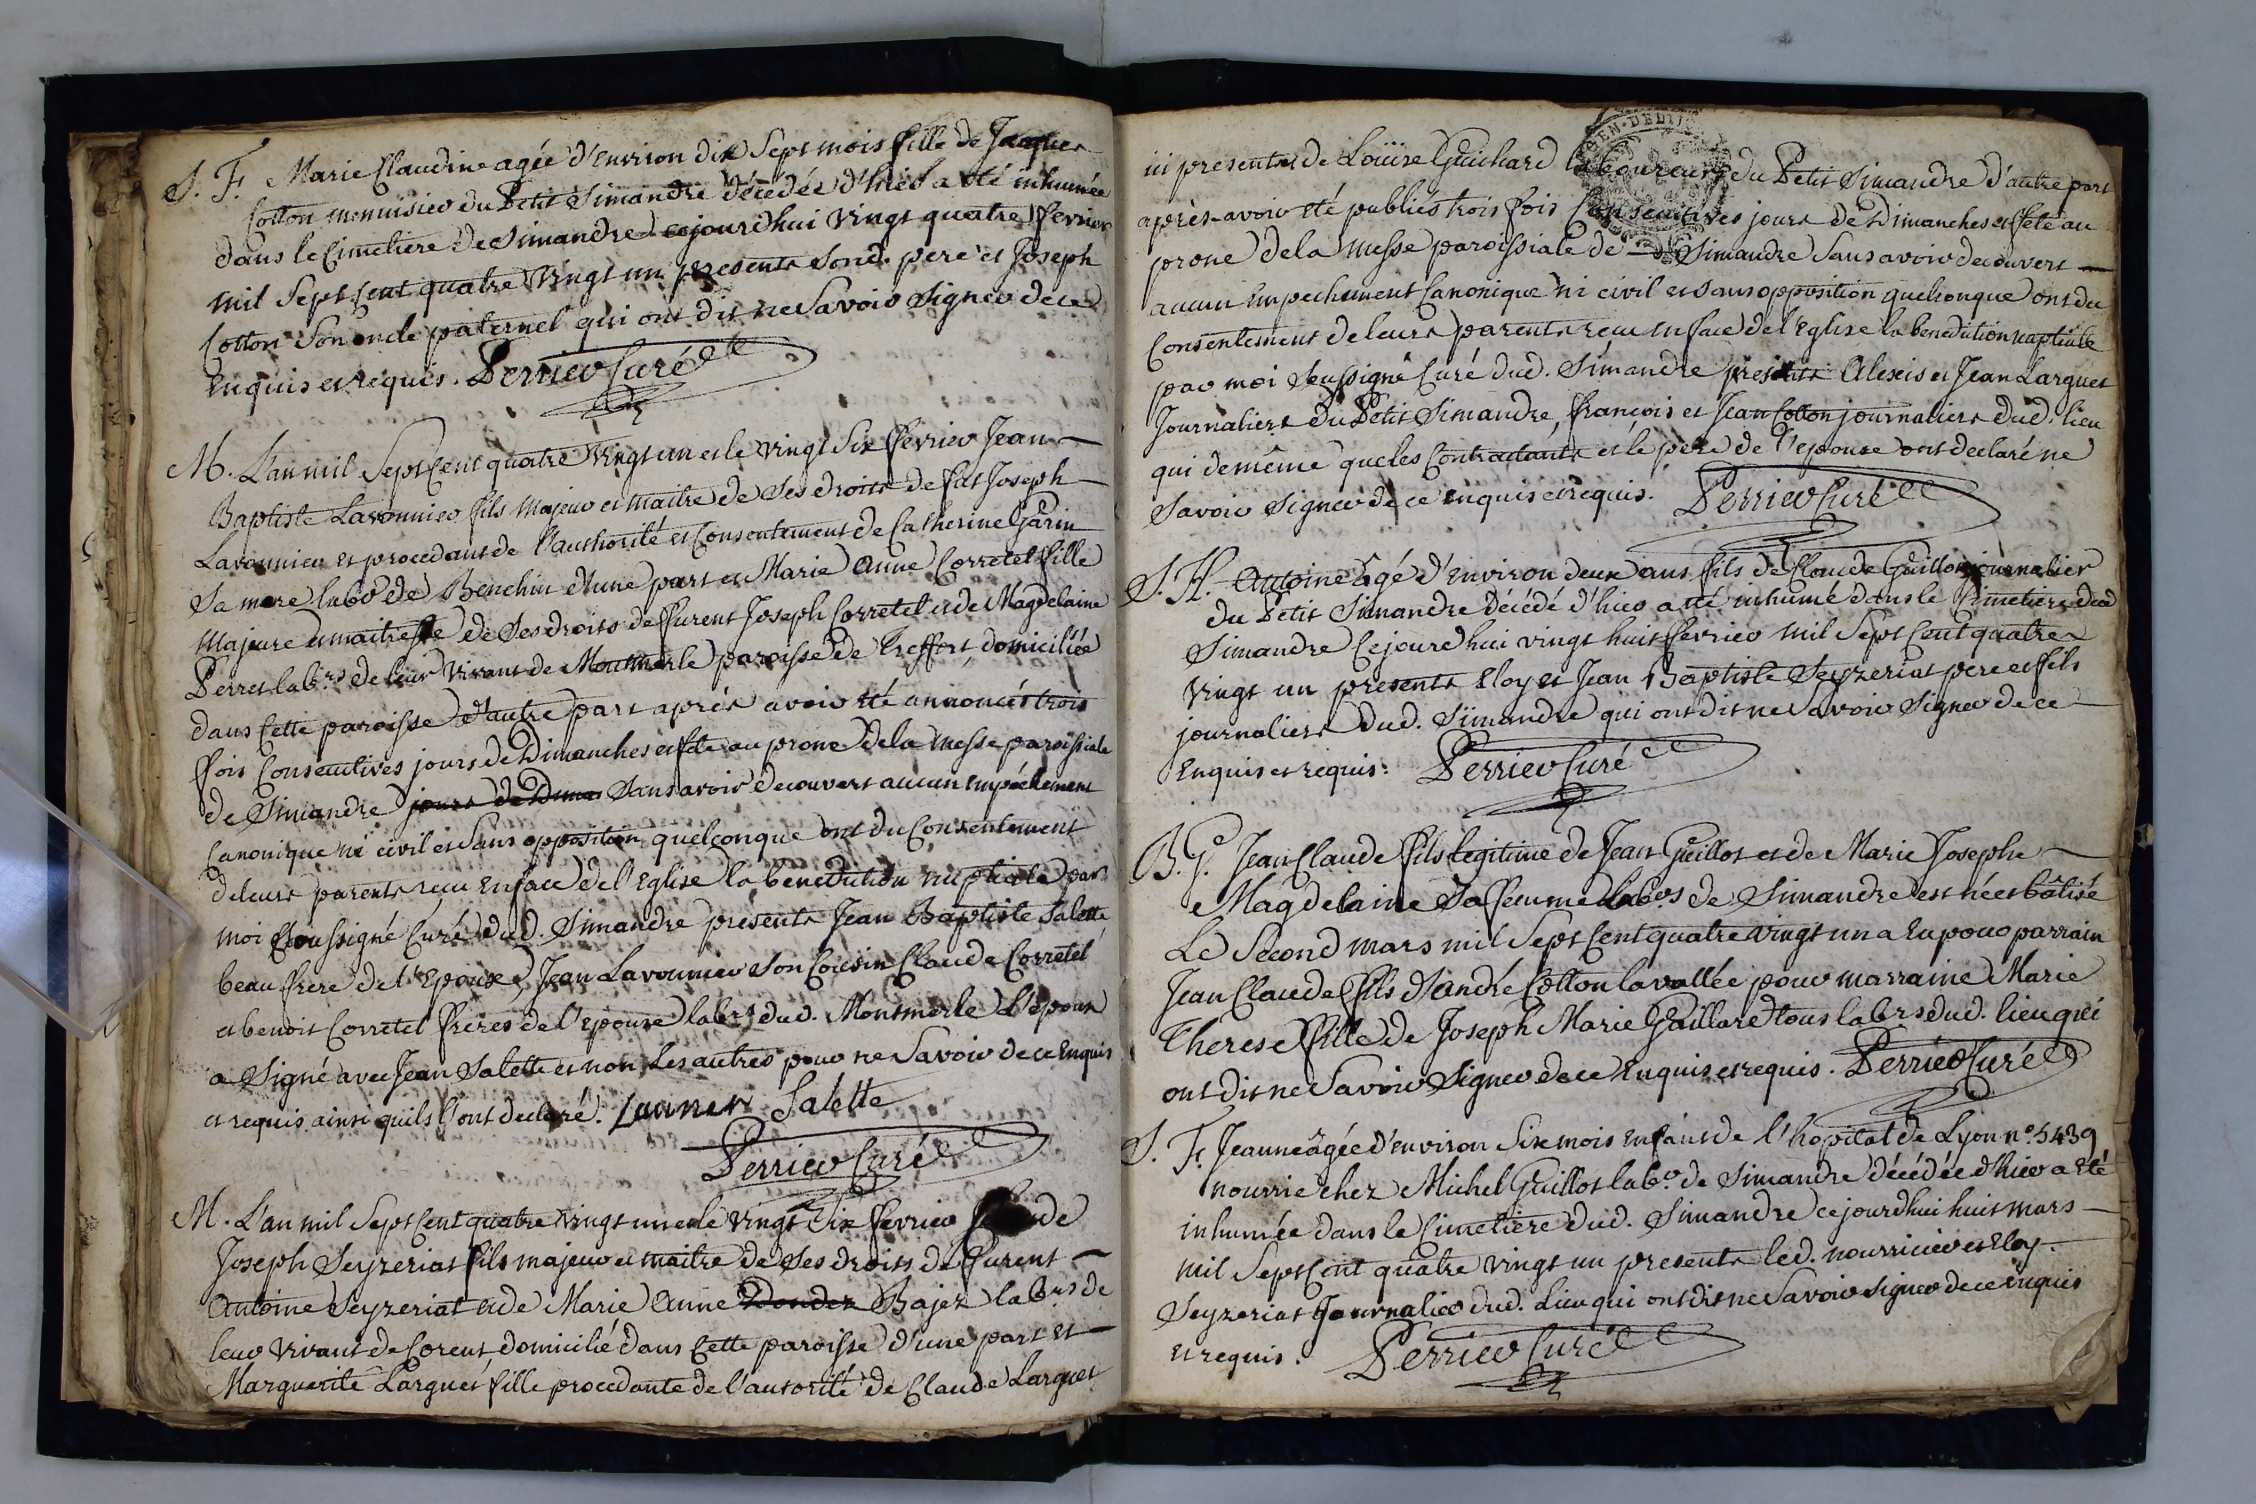 S. F. Marie Claudine agée d'Environ dix Sept mois fille de Jaques
Cotton menuisier du Petit Simandre décedée d'hier a été inhumée
dans le Cimetiere de Simandre cejourdhui vingt quatre fevrier
mil Sept Cent quatre vingt un presents Sond. pere et Joseph
Cotton Son oncle paternel qui ont dit ne Savoir Signer de ce
Enquis et requis. Perrier Curé
M. L'an mil Sept Cent quatre vingt un et le vingt Six fevrier Jean
Baptiste Lavounier fils majeur et maitre de Ses droits de fut Joseph
Lavounier et procedant de l'authorité et Consentement de Catherine Garin
Sa mere labr de Benchin d'une part et Marie Anne Corretel fille
majeure et maitresse de Ses droits de ffurent Joseph Corretel et de Magdelaine
Perret labrs de leur vivant de Montmerle paroisse de Treffort domiciliée
dans Cette paroisse d'autre part après avoir été annoncés trois
fois Consecutives jours de Dimanches et fete au prone de la messe paroissiale
de Simandre jours de Diman Sans avoir decouvert aucun Empéchement
Canonique ni civil et Sans opposition quelconque ont du Consentement
de leurs parents reçu En face de l'Eglise la benediction nuptiale par
moi Soussigné Curé dud. Simandre presents Jean Baptiste Salette
beau frere de l'Epouse, Jean Lavounier Son Cousin Claude Corretel
et benoit Corretel freres de l'Epouse labrs dud. Montmerle l'Epoux
a Signé avec Jean Salette et non les autres pour ne Savoir de ce Enquis
et requis ainsi quils l'ont declaré. Launier Salette
Perrier Curé
M. L'an mil Sept Cent quatre vingt un et le vingt Six fevrier
Joseph Seyzeriat fils majeur et maitre de Ses droits de ffurent
Antoine Seyzeriat et de Marie Anne Dondez Bajez labrs de
leur vivant de Corent domicilié dans Cette paroisse d'une part et
Marguerite Larguet fille procedante de l'autorité de Claude Larguet
ici presents de Loüise Guichard laboureurs du Petit Simandre d'autre part
après avoir été publiés trois fois Consecutives jours de Dimanches et fete au
prone de la messe paroissiale de Simandre Sans avoir decouvert
aucun Empechement Canonique ni civil et Sans opposition quelconque ont du
Consentement de leurs parents reçu en face de l'Eglise la benediction nuptiale
par moi Soussigné Curé dud. Simandre presents Alexis et Jean Larguet
Journaliers du Petit Simandre, françois et Jean Cotton journaliers dud. lieu
qui de même que les Contractants et le pere de l'epouse ont declaré ne
Savoir Signer de ce enquis et requis. Perrier Curé
S. H. Antoine âgé d'Environ deux ans fils de Claude Guillot journalier
du Petit Simandre Décédé d'hier a été inhumé dans le Cimetiere dud
Simandre Cejourdhui vingt huit fevrier mil Sept Cent quatre
vingt un presents Eloy et Jean Baptiste Seyzeriat pere et fils
journaliers dud. Simandre qui ont dit ne Savoir Signer de ce
Enquis et requis: Perrier Curé
B. G. Jean Claude fils legitime de Jean Guillot et de Marie Josephe
Magdelaine Sa femme labrs de Simandre est né et bâtisé
Le Second mars mil Sept Cent quatre vingt un a Eu pour parrain
Jean Claude fils d'André Cotton lavallée pour marraine Marie
Therese fille de Joseph Marie Gaillard tous labrs dud. lieu qui
ont dit ne Savoir Signer de ce Enquis et requis. Perrier Curé
S. F. Jeanne âgée d'environ Six mois Enfant de l'hopital de Lyon n°. 5439
nourrie chez Michel Guillot labr. de Simandre décédée d'hier a Eté
inhumée dans le Cimetiere dud. Simandre cejourdhui huit mars
mil Sept Cent quatre vingt un presents led. nourricier et Eloy
Seyzeriat Journalier dud. Lieu qui ont dit ne Savoir Signer de ce enquis
et requis. Perrier Curé